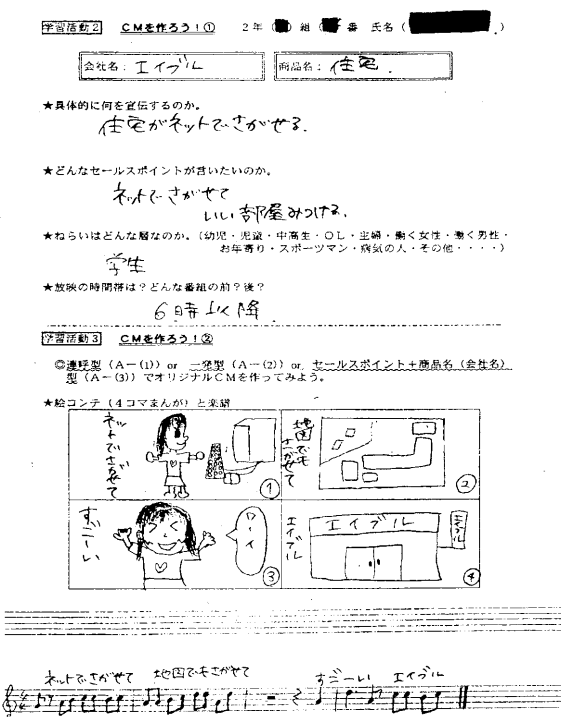 学習活動2 CMを作ろう!① 2年( )組( )番 氏名( )
会社名: エイブル 商品名: 住宅
★具体的に何を宣伝するのか。
住宅がネットでさがせる.
★どんなセールスポイントが言いたいのか。
ネットでさがせて
いい部屋みつける.
★ねらいはどんな層なのか。(幼児・児童・中高生・OL・主婦・働く女性・働く男性・
お年寄り・スポーツマン・病気の人・その他・・・・)
学生
★放映の時間帯は?どんな番組の前?後?
6時以降
学習活動3 CMを作ろう!②
◎連呼型(A-(1)) or 一発型(A-(2)) or, セールスポイント+商品名(会社名)
型(A-(3))でオリジナルCMを作ってみよう。
★絵コンテ(4コマまんが)と楽譜
ネットでさがせて
①
地図でもさがせて
②
すごーい
ワーイ
③
エイブル
エイブル
エイブル
④
ネットでさがせて 地図でもさがせて すごーい エイブル